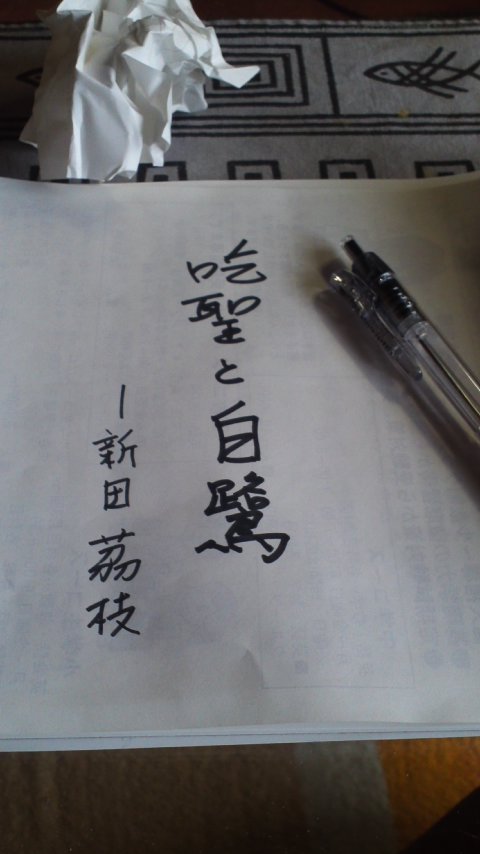 吃聖と白鷺
ー新田 茘枝